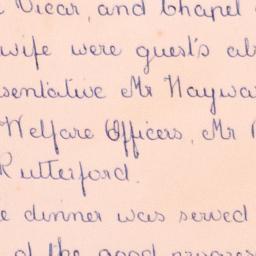 Vicar, and Chapel
wife were guest's
sentative Mr Haywa
Welfare Officers, Mr
Rutterford.
dinner was served
of the good progress